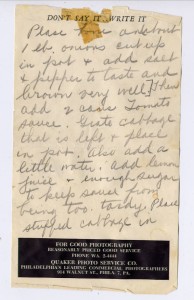 DON'T SAY IT . WRITE IT
Place 
1 lb. onions cut up
in pot & add salt
& pepper to taste and
brown very well. Then
add 2 cans Tomato
sauce. Grate cabbage
that is left & place
in pot. Also add a
little water. Add lemon
juice & enough sugar
to keep sauce from
being too tarty. Place
stuffed cabbage in
FOR GOOD PHOTOGRAPHY
REASONABLY PRICED GOOD SERVICE
PHONE WA. 2-4444
QUAKER PHOTO SERVICE CO.
PHILADELPHIA'S LEADING COMMERCIAL PHOTOGRAPHERS
914 WALNUT ST., PHILA. 7, PA.